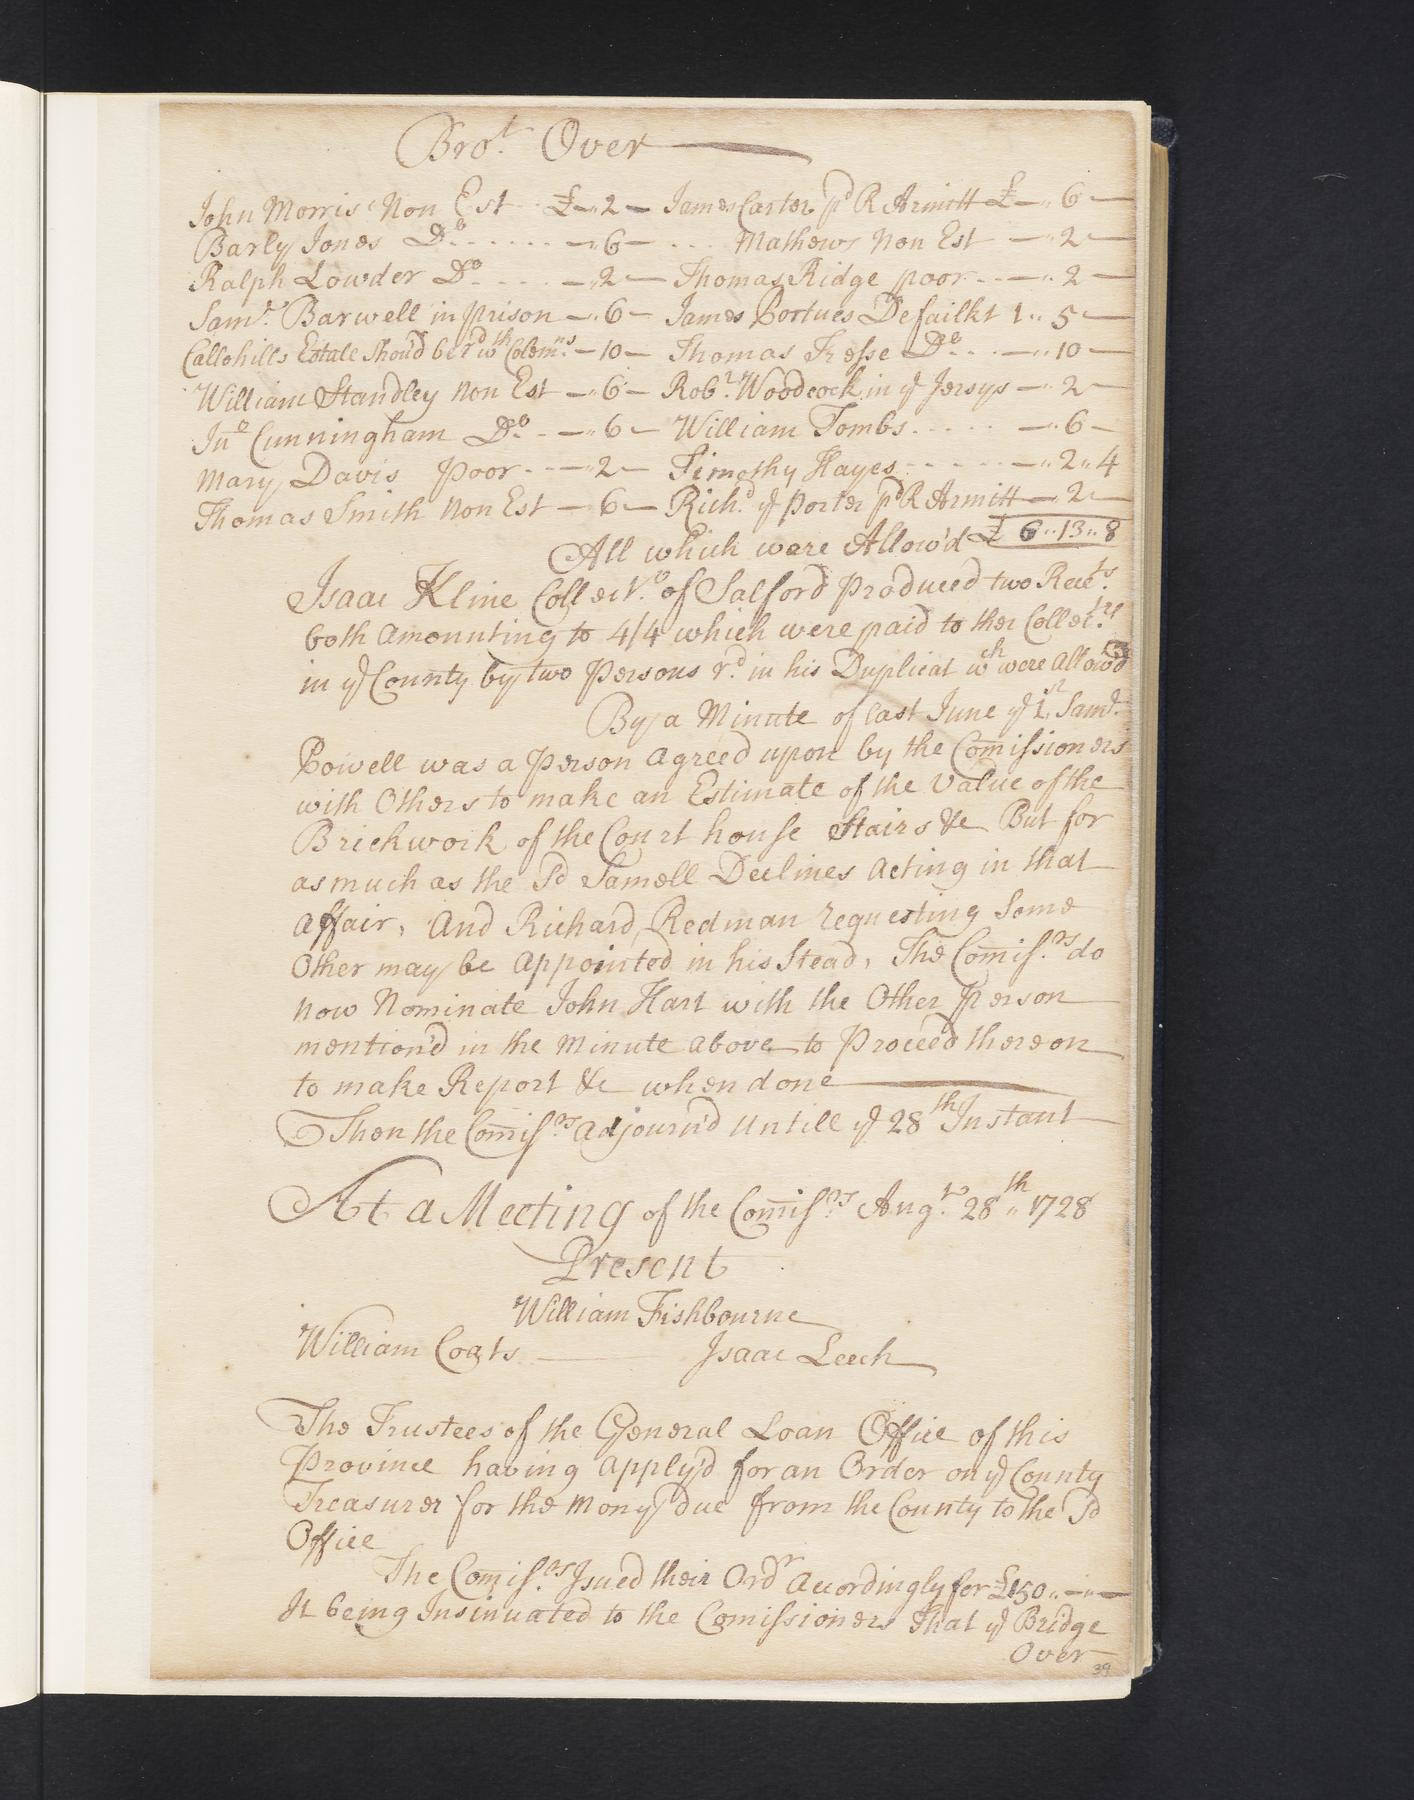 Bro.t Over
John Morris Non Est £-"2- James Carter pd R Armitt £-"6-
Barly Jones Do. -"6- ... Mathews Non Est -"2-
Ralph Lowder Do. -"2- Thomas Ridge poor -"2-
Sam.l Barwell in prison -"6- James Portues Defailkt 1"5-
Callohills Estate Shou'd be rd wth Colem.ns -10- Thomas Fresse Do. -"10-
William Standley Non Est -"6- Rob.t Woodcock in ye Jersys -"2-
Jno Cunningham Do. -"6- William Tombs -"6-
Mary Davis poor -"2- Timothy Hayes -"2"4
Thomas Smith Non Est -6- Rich.d ye porter pd R Armitt -"2-
All which were Allow'd £ 6"13"8
Isaac Kline Collect.o of Salford Produced two Rece.ts
both Amounting to 4/4 which were paid to ther Collet.rs
in ye County by two Persons r.d in his Duplicat wch were Allow'd
By a Minute of last June ye 1st Sam.l
Powell was a Person Agreed upon by the Comissioners
with Others to make an Estimate of the Value of the
Brickwork of the Court house Stairs &c But for
as much as the Sd Samell Declines Acting in that
Affair, And Richard Redman requesting Some
Other may be Appointed in his Stead, The Comis.rs do
now Nominate John Hart with the Other Person
mention'd in the Minute above to Proceed thereon
to make Report &c when done
Then the Comis.rs Adjourn'd Untill ye 28th Instant
At a Meeting of the Comis.rs Aug.t 28th 1728
Present
William Fishbourne
William Coats Isaac Leech
The Trustees of the General Loan Office of this
Province having Apply'd for an Order on ye County
Treasurer for the Mony due from the County to the Sd
Office
The Comis.rs Isued their Ordr Acordingly for £150"-"-
It being Insinuated to the Comissioners that ye Bridge
Over
39